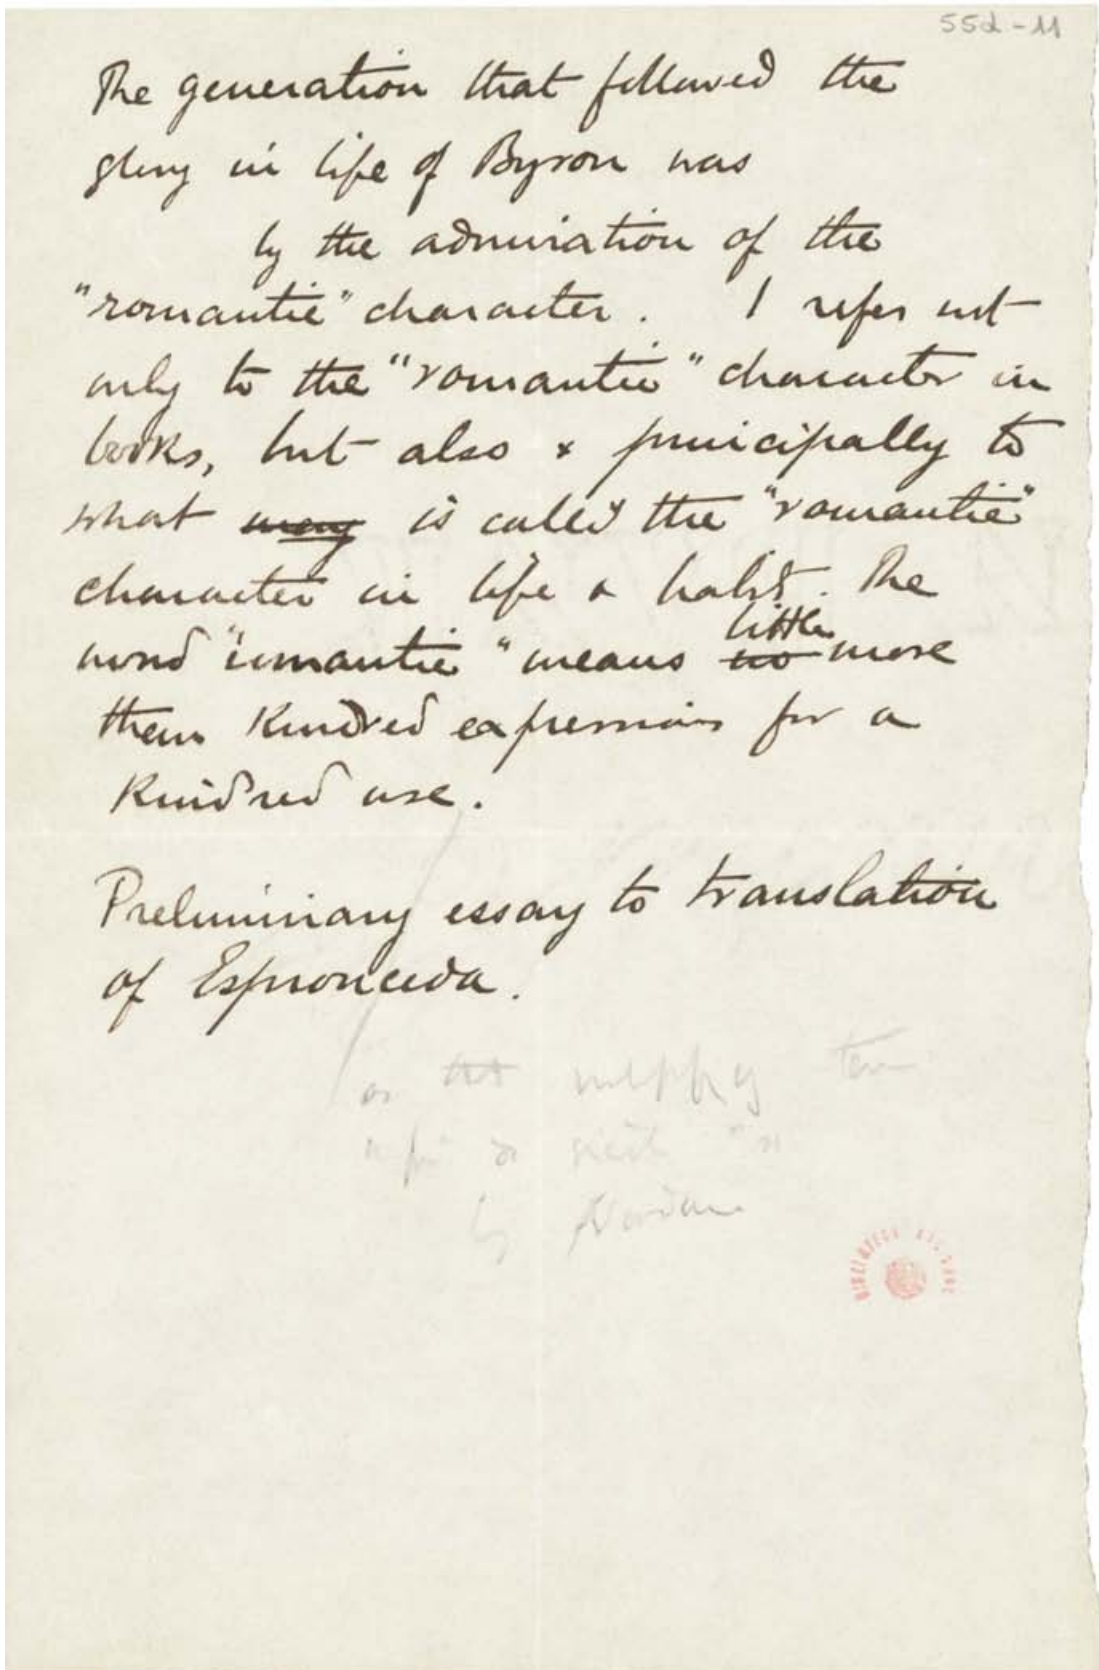 55d-11
The generation that followed the
glory in life of Byron was
by the admiration of the
"romantic" character. I refer not
only to the "romantic" character in
books, but also & principally to
what may is called the "romantic"
character in life & habit. The
little
word "romantic" means no more
than kindred expressions for a
kindred use.
Preliminary essay to translation
of Espronceda.
by Nordau